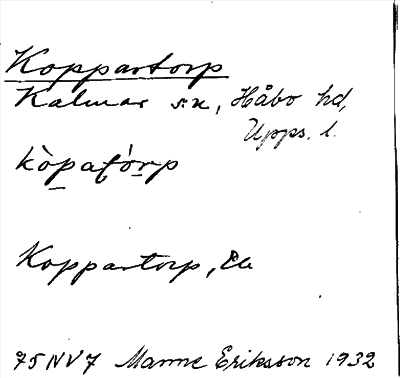 Koppartorp
Kalmar sn, Håbo hd,
Upps. l.
kò̱paťó̱rp
Koppartorp, Ek
75NV7 Manne Eriksson 1932